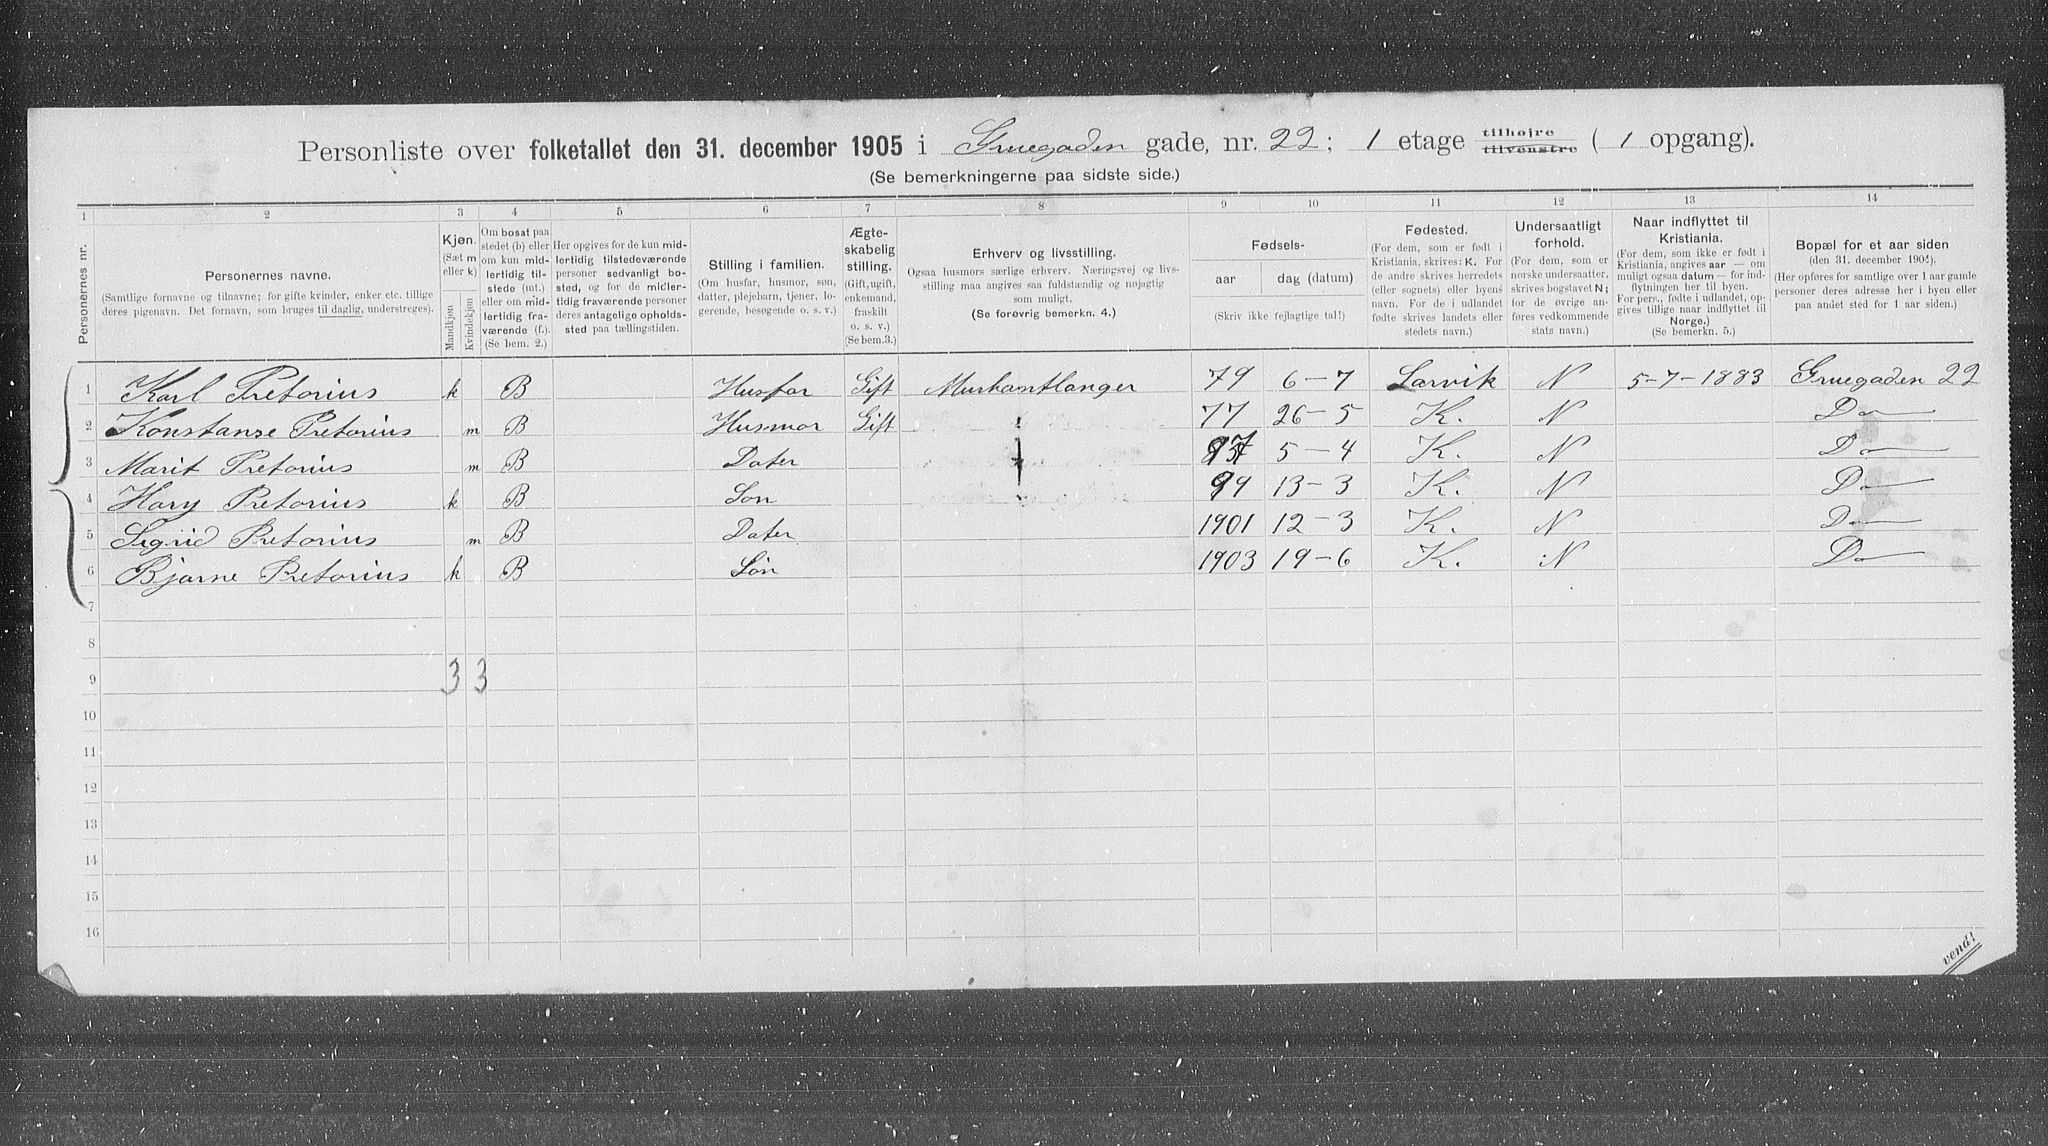 Personliste over folketallet den 31. december 1905 i Gruegaden gade, nr. 22; 1 etage tilhøjre tilvenstre ( 1 opgang).
(Se bemerkningerne paa sidste side.)
1 2 3 4 5 6 7 8 9 10 11 12 13 14
Personernes nr.
Personernes navne.
(Samtlige fornavne og tilnavne; for gifte kvinder, enker etc. tillige
deres pigenavn. Det fornavn, som bruges til daglig, understreges).
Kjøn.
(Sæt m
eller k)
Mandkjøn
Kvindekjøn
Om bosat paa
stedet (b) eller
om kun mid-
lertidig til-
stede (mt.)
eller om mid-
lertidig fra-
værende (f.).
(Se bem. 2.)
Her opgives for de kun mid-
lertidig tilstedeværende
personer sedvanligt bo-
sted, og for de midler-
tidig fraværende personer
deres antagelige opholds-
sted paa tællingstiden.
Stilling i familien.
(Om husfar, husmor, søn,
datter, plejebarn, tjener, lo-
gerende, besøgende o. s. v.)
Ægte-
skabelig
stilling.
(Gift, ugift,
enkemand,
fraskilt
o. s. v.)
(Se bem.3.)
Erhverv og livsstilling.
Ogsaa husmors særlige erhverv. Næringsvej og livs-
stilling maa angives saa fuldstændig og nøjagtig
som muligt.
(Se forøvrig bemerkn. 4.)
Fødsels-
aar dag (datum)
(Skriv ikke fejlagtige tal!)
Fødested.
(For dem, som er født i
Kristiania, skrives: K. For
de andre skrives herredets
(eller sognets) eller byens
navn. For de i udlandet
fødte skrives landets eller
stedets navn.)
Undersaatligt
forhold.
(For dem, som er
norske undersaatter,
skrives bogstavet N;
for de øvrige an-
føres vedkommende
stats navn.)
Naar indflyttet til
Kristiania.
(For dem, som ikke er født i
Kristiania, angives aar — om
muligt ogsaa datum — for ind-
flytningen her til byen.
For pers., fødte i udlandet, op-
gives tillige naar indflyttet til
Norge.)
(Se bemerkn. 5.)
Bopæl for et aar siden
(den 31. december 1904.)
(Her opføres for samtlige over 1 aar gamle
personer deres adresse her i byen eller
paa andet sted for 1 aar siden.)
1 Karl Pretorius k B Husfar Gift Murhantlanger 79 6-7 Larvik N 5-7-1883 Gruegaden 22
2 Konstanse Pretorius m B Husmor Gift 77 26-5 K. N Do
3 Marit Pretorius m B Dater 97 5-4 K. N Do
4 Hary Pretorius k B Søn 99 13-3 K. N Do
5 Sigrid Pretorius m B Dater 1901 12-3 K. N Do
6 Bjarne Pretorius k B Søn 1903 19-6 K. N Do
7
8
9 3 3
10
11
12
13
14
15
16
vend!